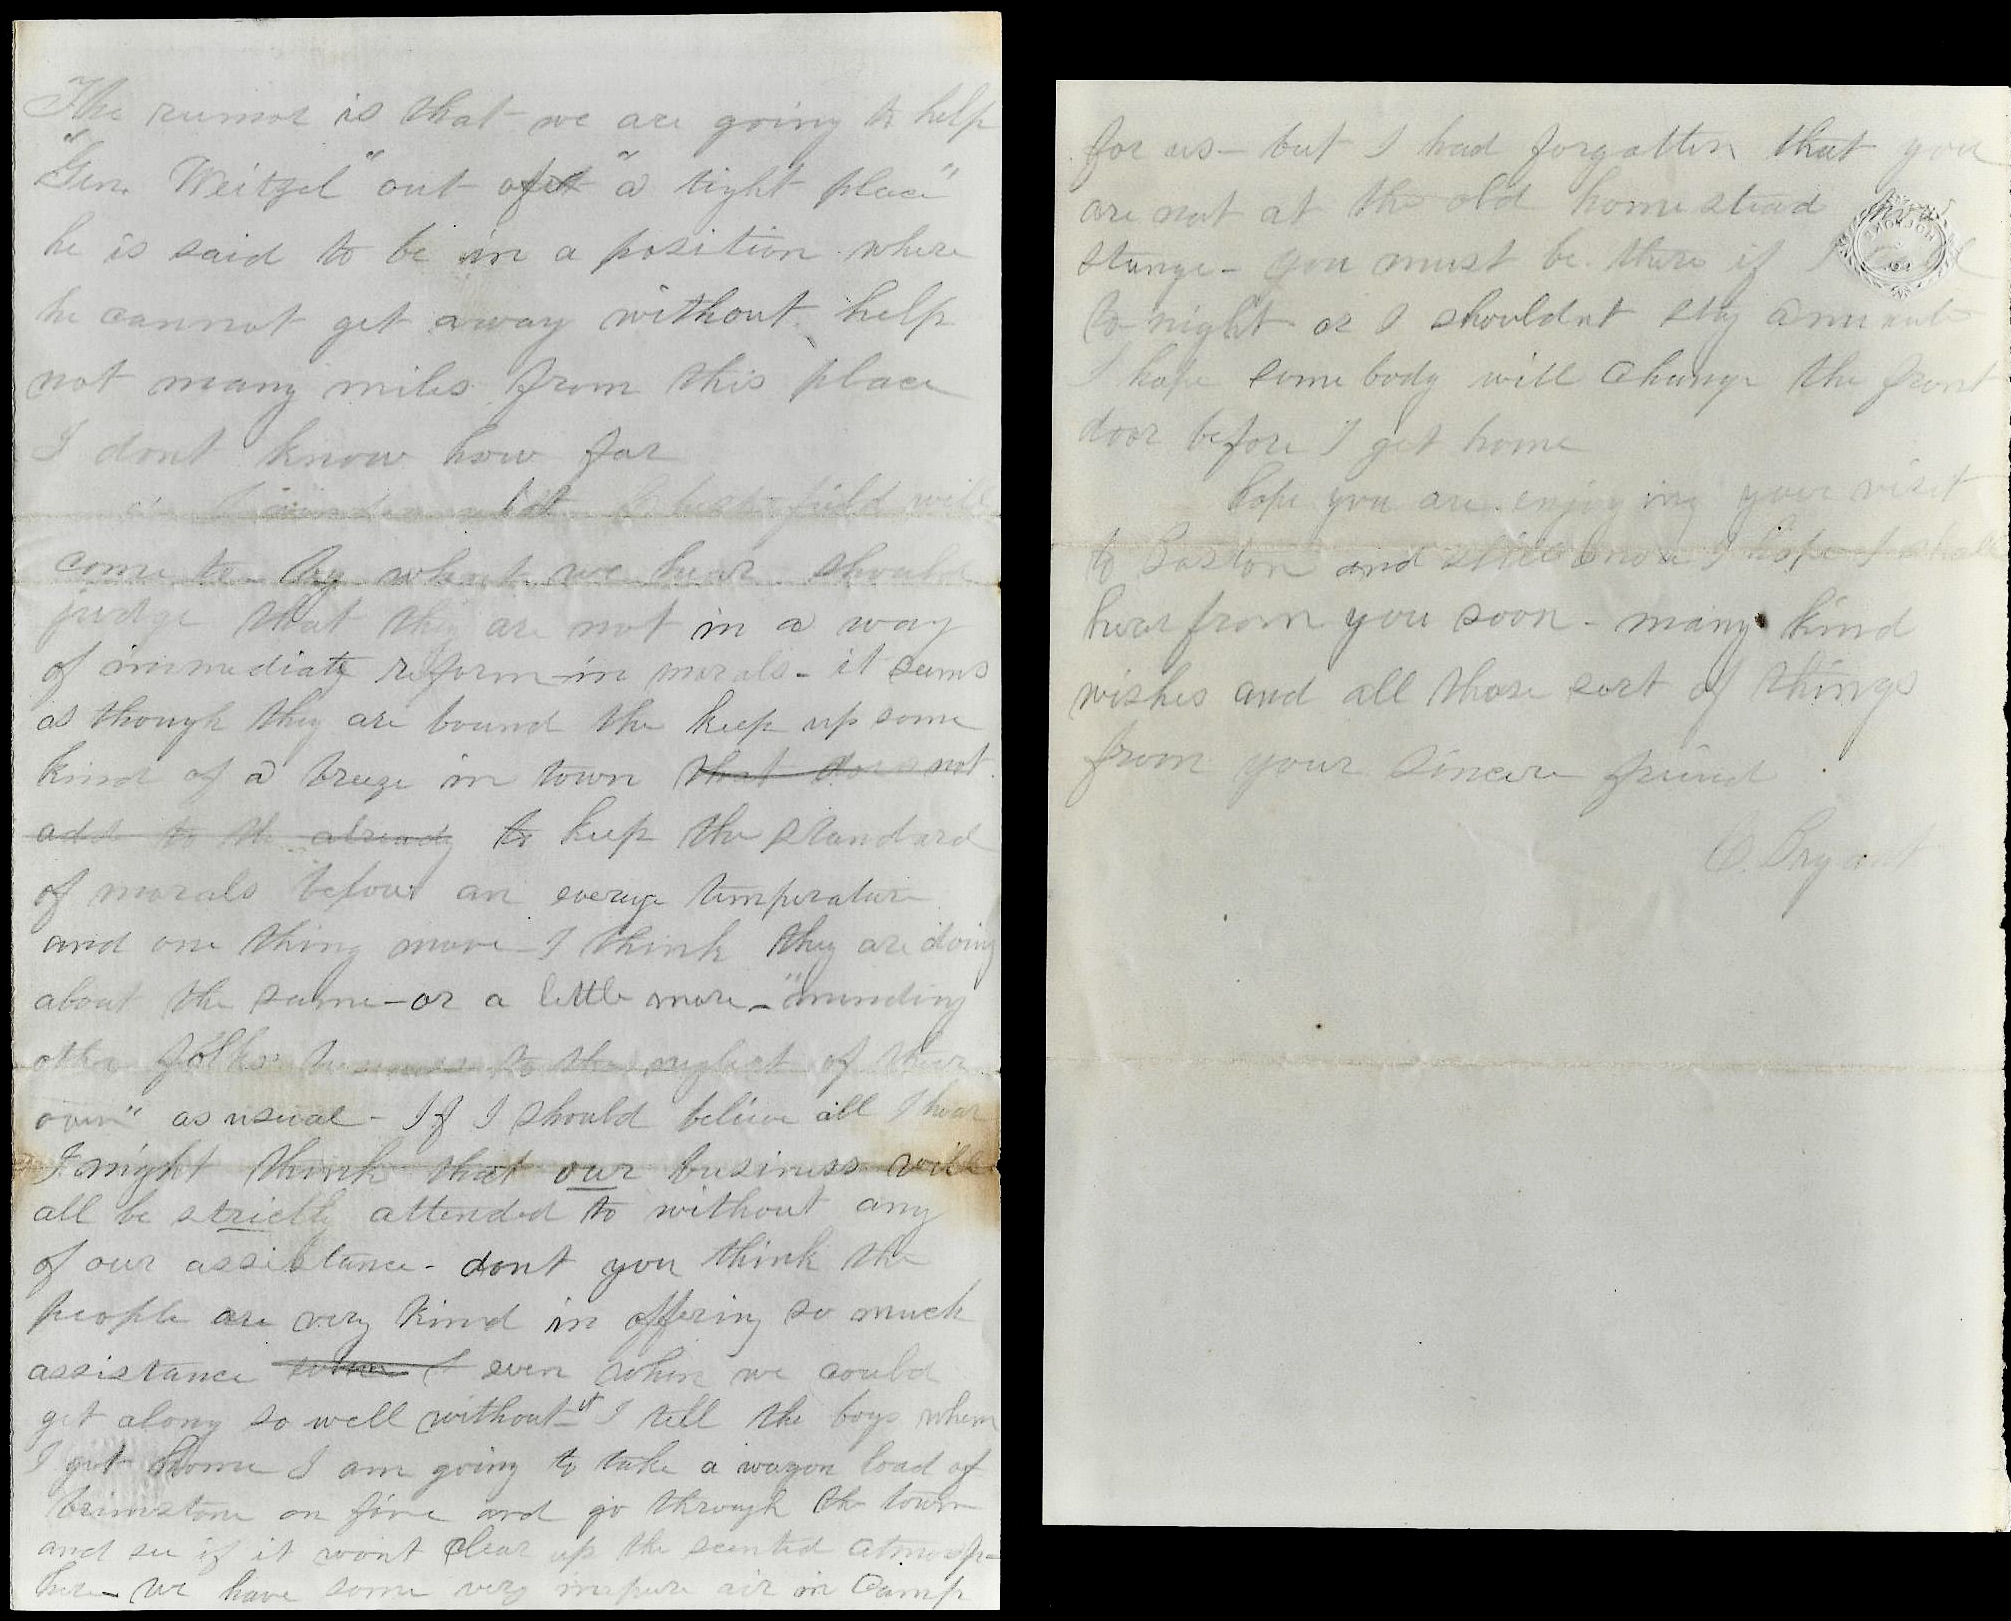 The rumor is that we are going to help
"Gen. Weitzel" out of "a tight place"
he is said to be in a position where
he cannot get away without help
not many miles from this place
I dont know how far
I wonder what Chesterfield will
come to - by what we hear should
judge that they are not in a way
of immediate reform in morals - it seems
as though they are bound the keep up some
kind of a breeze in town that does not
add to the already to keep the standard
of morals below an everage temperature
and one thing more I think they are doing
about the same - or a little more - "minding
other folks business to the neglect of their
own" as usual - If I should believe all I hear
I might think that our business will
all be strictly attended to without any
of our assistance - dont you think the
people are very kind in offering so much
assistance even when we could
get along so well without it I tell the boys when
I get home I am going to take a wagon load of
brimstone on fire and go through the town
and see if it wont clear up the scented atmosp-
here - we have some very impure air in Camp
for us - but I had forgotten that you
are not at the old homestead
stange - you must be there if I
to night or I shouldnt stay a minute
I hope some body will change the front
door before I get home
hope you are enjoying your visit
to Boston and still more I hope I shall
hear from you soon - many kind
wishes and all those sort of things
from your sincere friend
C. Bryant